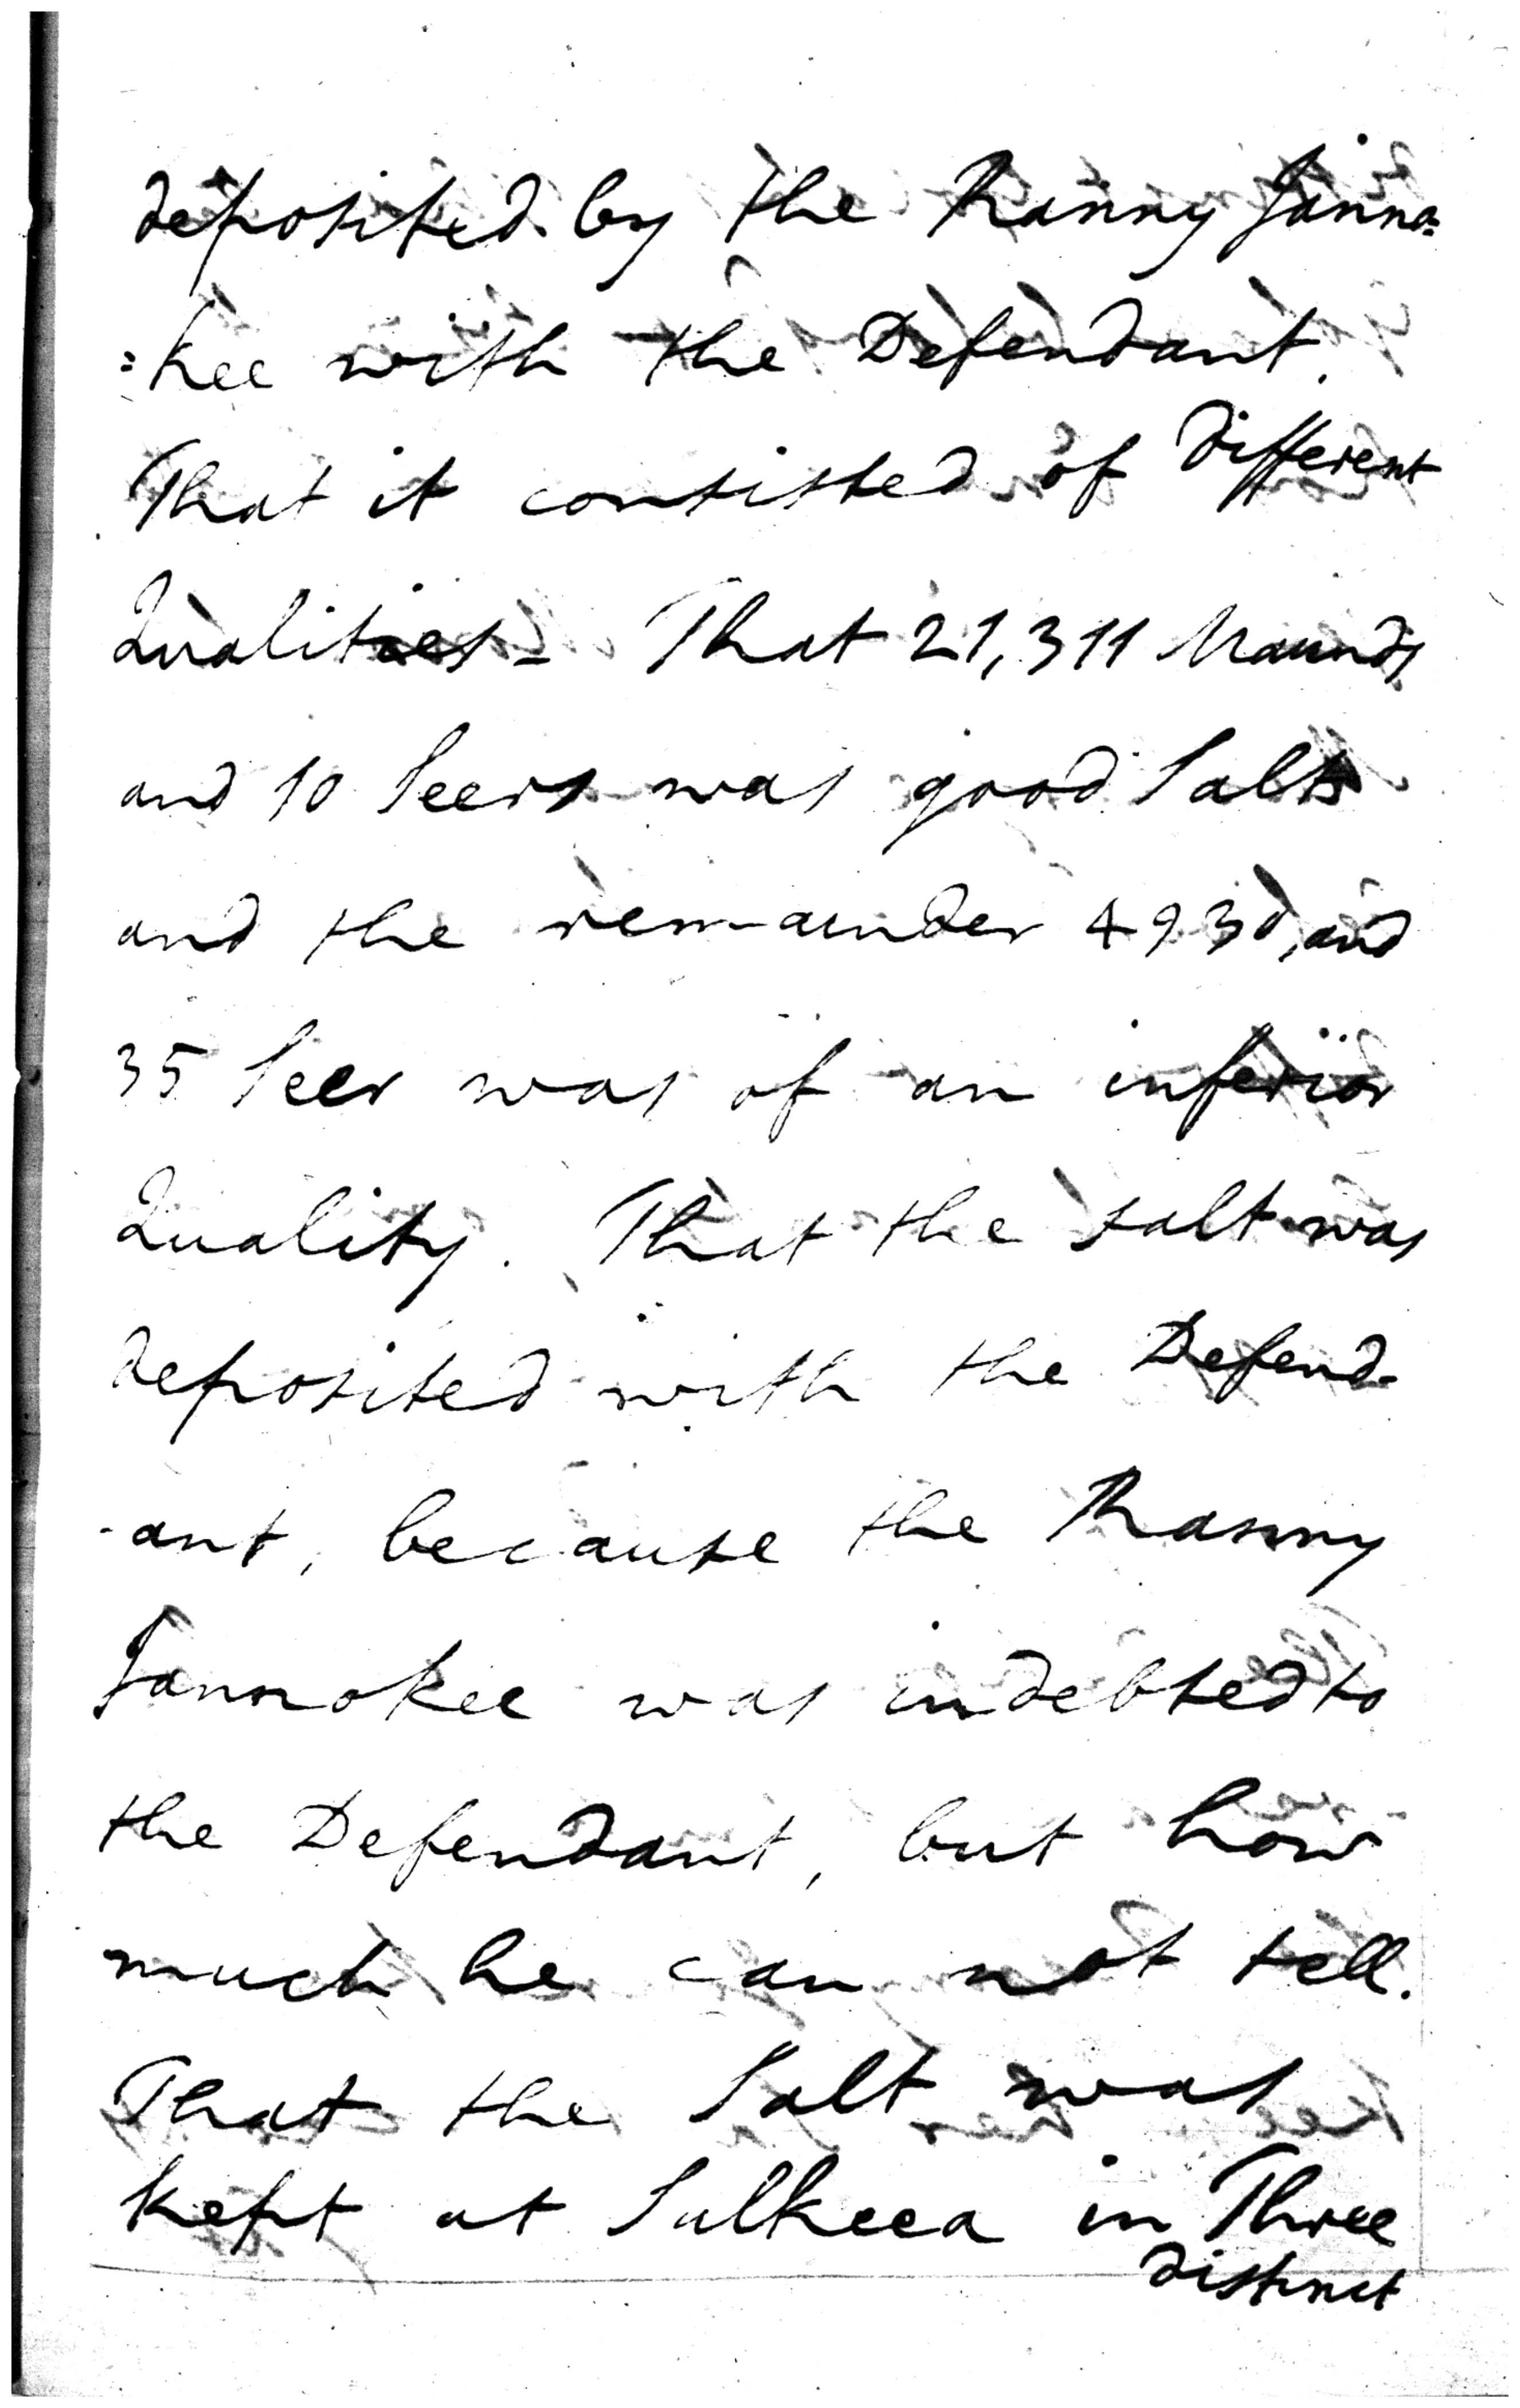 deposited by the Ranny Janno=
=kee with the Defendant.
That it consisted of different
Qualities - That 21,311 Maunds
and 10 Seers was good Salt
and the remainder 4930, and
35 Seer was of an inferior
Quality. That the salt was
deposited with the Defend-
-ant, because the Ranny
Jannokee was indebted to
the Defendant, but how
much he can not tell.
That the Salt was
kept at Sulkeea in Three
distinct